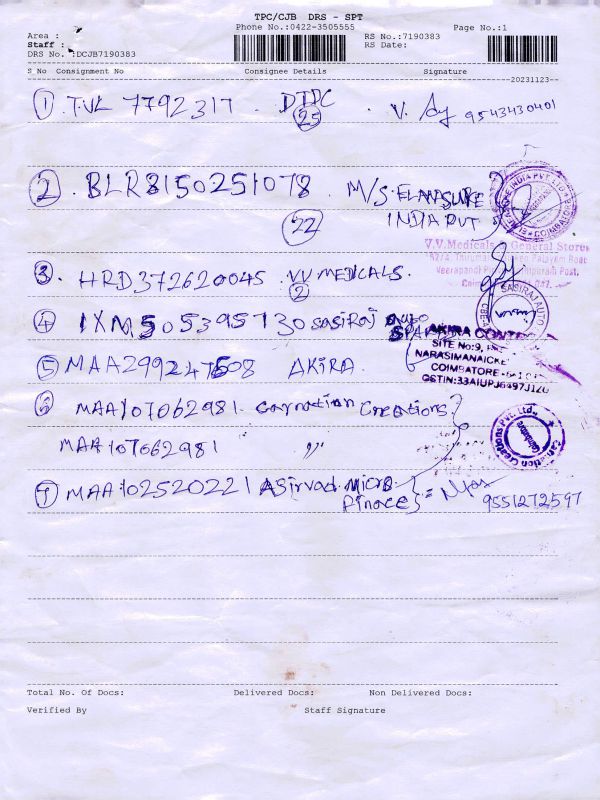 TPC/CJB DRS - SPT
Phone No.:0422-3505555
Page No.:1
Area :
Staff :
DRS No. :DCJB7190383
RS No.:7190383
RS Date:
S No Consignment No Consignee Details Signature
20231123
1 TVL 7792317 . DTDC . V. 9543430401
25
2. BLR8150251078 . M/S. ELANSURE
INDIA PVT
22
COIMBATORE
V.V.Medicals & General Stores
3. HRD372620045 VV MEDICALS.
2
4 IXM505395730 sasiraj auto
SASIRAJ AUTO
AKIRA CONT
SITE No:9,
NARASIMANAICKE
COIMBATORE
GSTIN:33AIUPJ6497J1ZG
5 MAA299247508 AKIRA.
6 MAA107062981. Carnation Creations
Carnation Creations Pvt. Ltd.,
Coimbatore
MAA107062981 "
7 MAA102520221 Asirvad Micro
Finace 9551272597
Total No. Of Docs: Delivered Docs: Non Delivered Docs:
Verified By Staff Signature